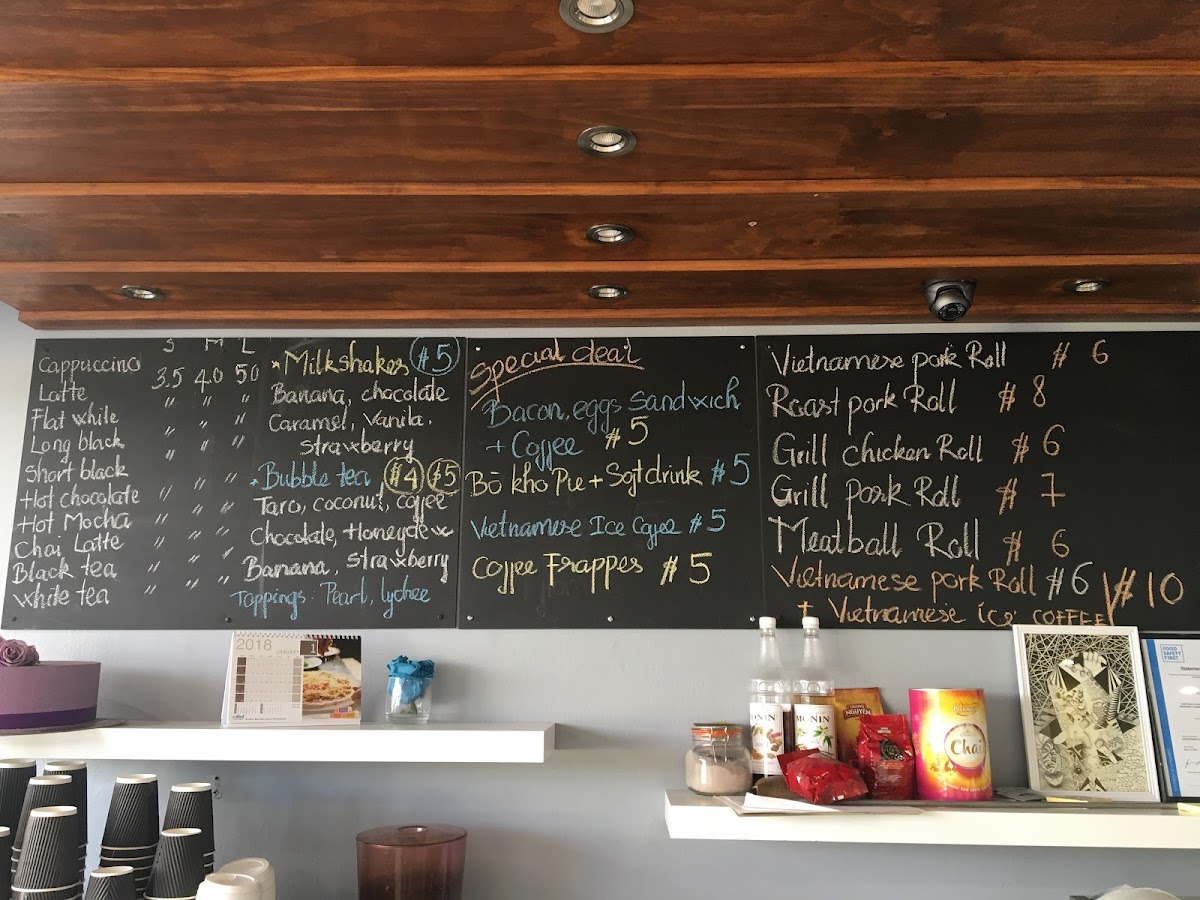 S M L
Cappuccino 3.5 4.0 5.0
Latte " " "
Flat white " " "
Long black " " "
Short black " " "
Hot chocolate " " "
Hot Mocha " " "
Chai Latte " " "
Black tea " " "
White tea " " "
*Milkshakes $5
Banana, chocolate
Caramel, Vanila.
Strawberry
*Bubble tea $4 $5
Taro, coconut, coffee
Chocolate, Honeydew
Banana, Strawberry
Toppings: Pearl, lychee
Special deal
Bacon, eggs sandwich
+ Coffee $5
Bò kho Pie + Soft drink $5
Vietnamese Ice Coffee $5
Coffee Frappes $5
Vietnamese pork Roll $ 6
Roast pork Roll $ 8
Grill chicken Roll $ 6
Grill pork Roll $ 7
Meatball Roll $ 6
Vietnamese pork Roll $6
+ Vietnamese ice coffee $10
2018 JANUARY 1
MONIN
MONIN
NGUYEN
Chai
FOOD
SAFETY
FIRST
Statement